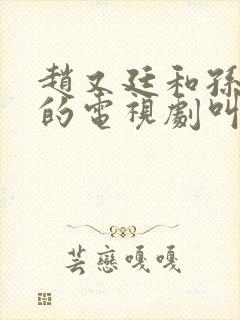 趙又廷和孫
的電視劇叫
芸戀嘎嘎